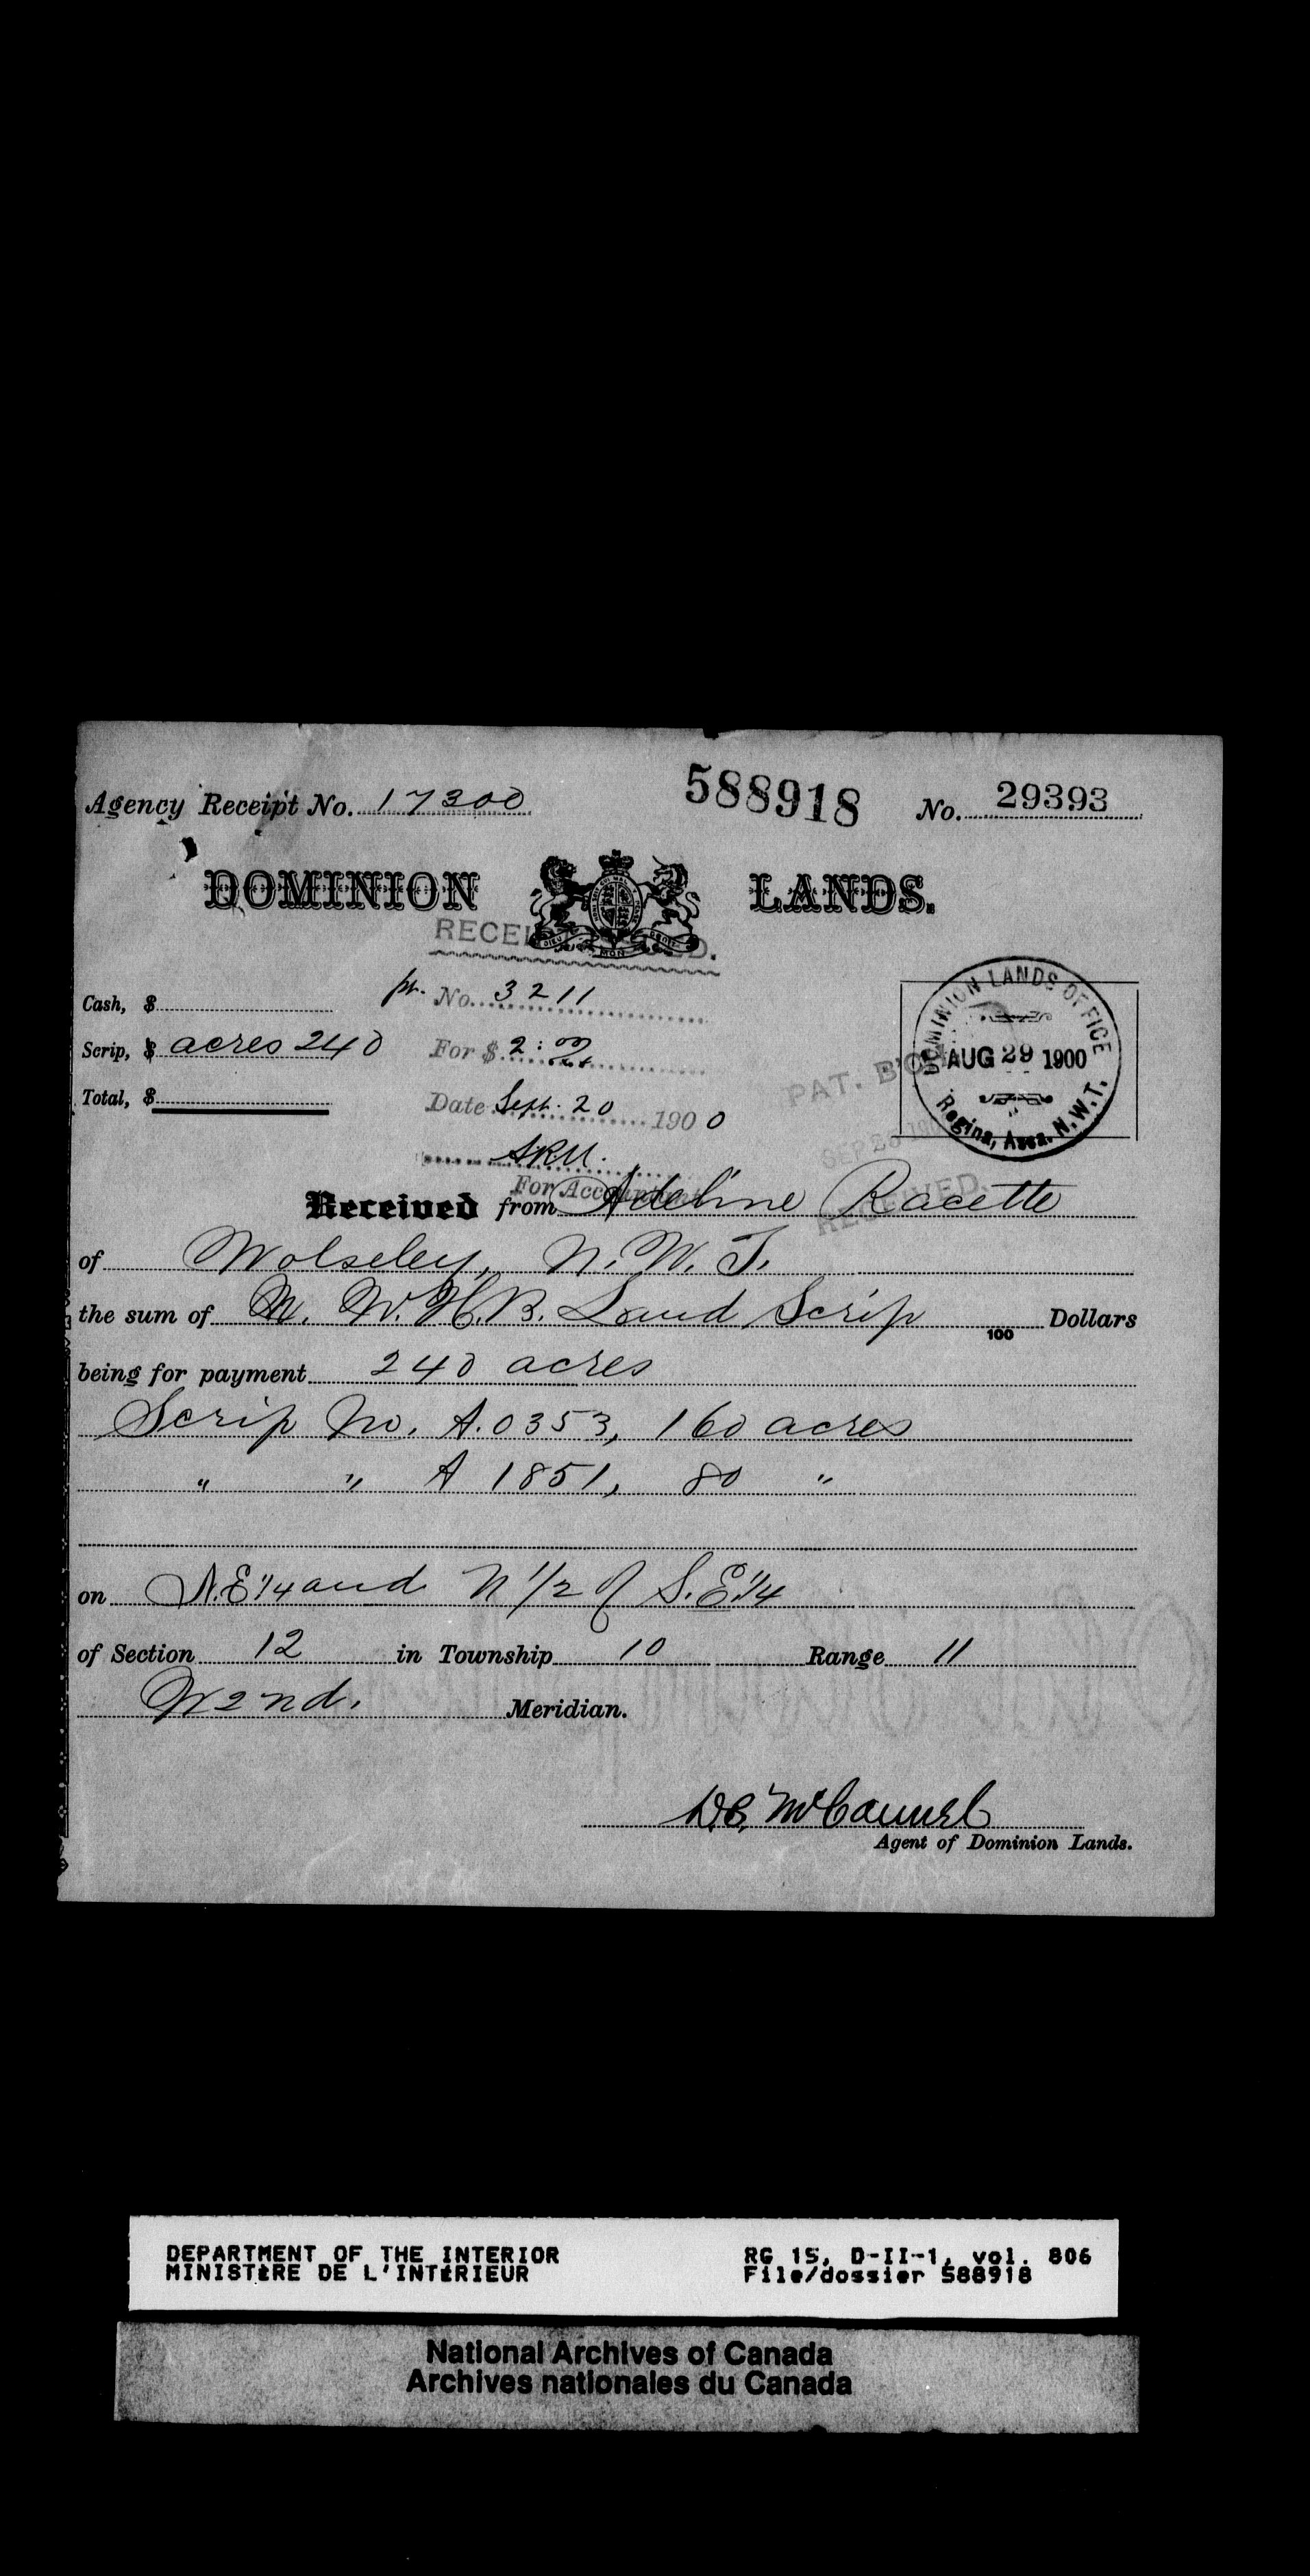 Agency Receipt No. 17300
588918
No. 29393
DOMINION LANDS.
RECEI D.
Cash, $
pt. No. 3211
Scrip, $ acres 240
For $ 2:00
Total, $
Date Sept. 20 1900
For Accountant
DOMINION LANDS OFFICE
AUG 29 1900
Regina, Assa. N.W.T.
PAT. B'CH
SEP 28 190
RECEIVED.
Received from Adeline Racette
of Wolseley, N.W.T.
the sum of N.W.H.B. Land Scrip 100 Dollars
being for payment 240 acres
Scrip No. A.0353, 160 acres
" " A 1851, 80 "
on N.E 1/4 and N 1/2 of S.E 1/4
of Section 12 in Township 10 Range 11
W 2nd. Meridian.
Agent of Dominion Lands.
DEPARTMENT OF THE INTERIOR
MINISTÈRE DE L'INTÉRIEUR
RG 15, D-II-1, vol. 806
File/dossier 588918
National Archives of Canada
Archives nationales du Canada